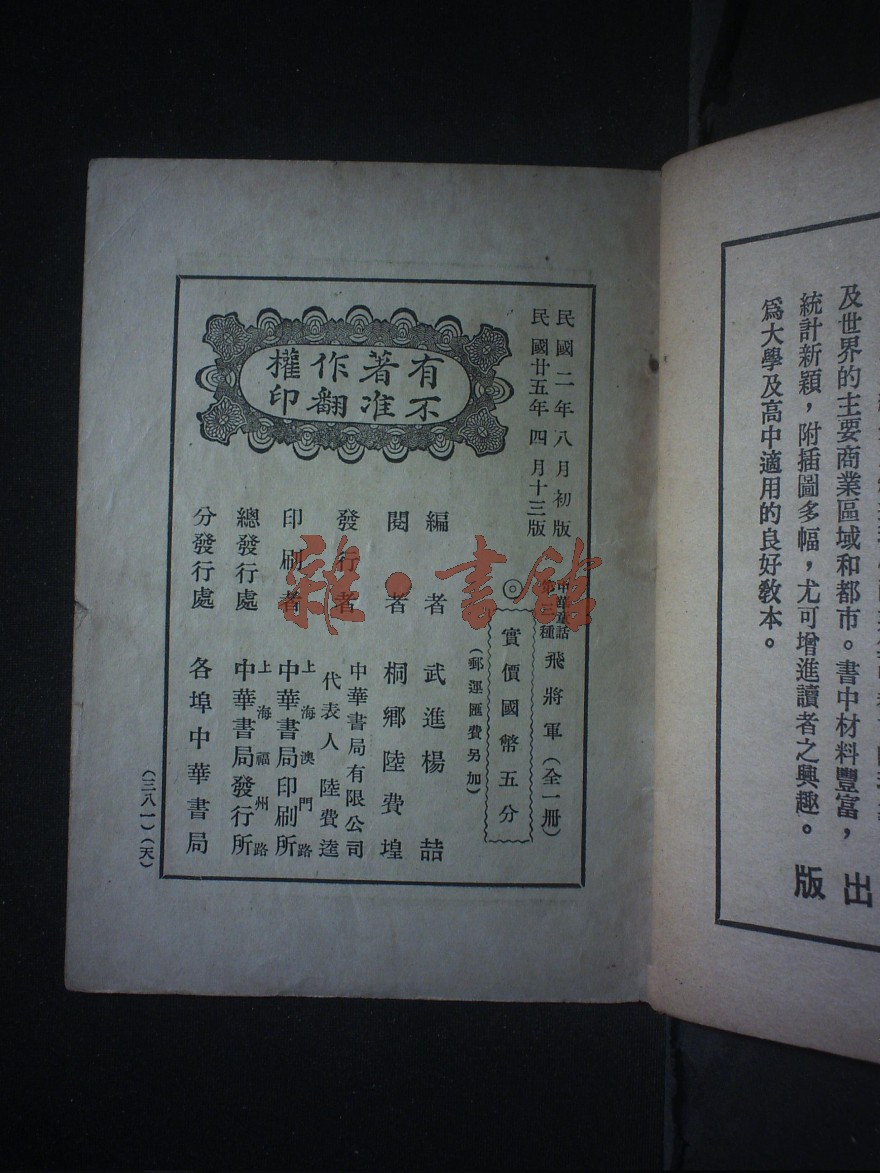 及世界的主要商業區域和都市。書中材料豐富，
統計新穎，附插圖多幅，尤可增進讀者之興趣。
爲大學及高中適用的良好教本。
出
版
民國二年八月初版
民國廿五年四月十三版
有著作權
不准翻印
中華童話
第三種
飛將軍（全一册）
◎
實價國幣五分
（郵運匯費另加）
編者 武進楊喆
閱者 桐鄉陸費堭
發行者 中華書局有限公司
代表人 陸費逵
印刷者 上海澳門路
中華書局印刷所
總發行處 上海福州路
中華書局發行所
分發行處 各埠中華書局
（三八一）（天）
雜·書館